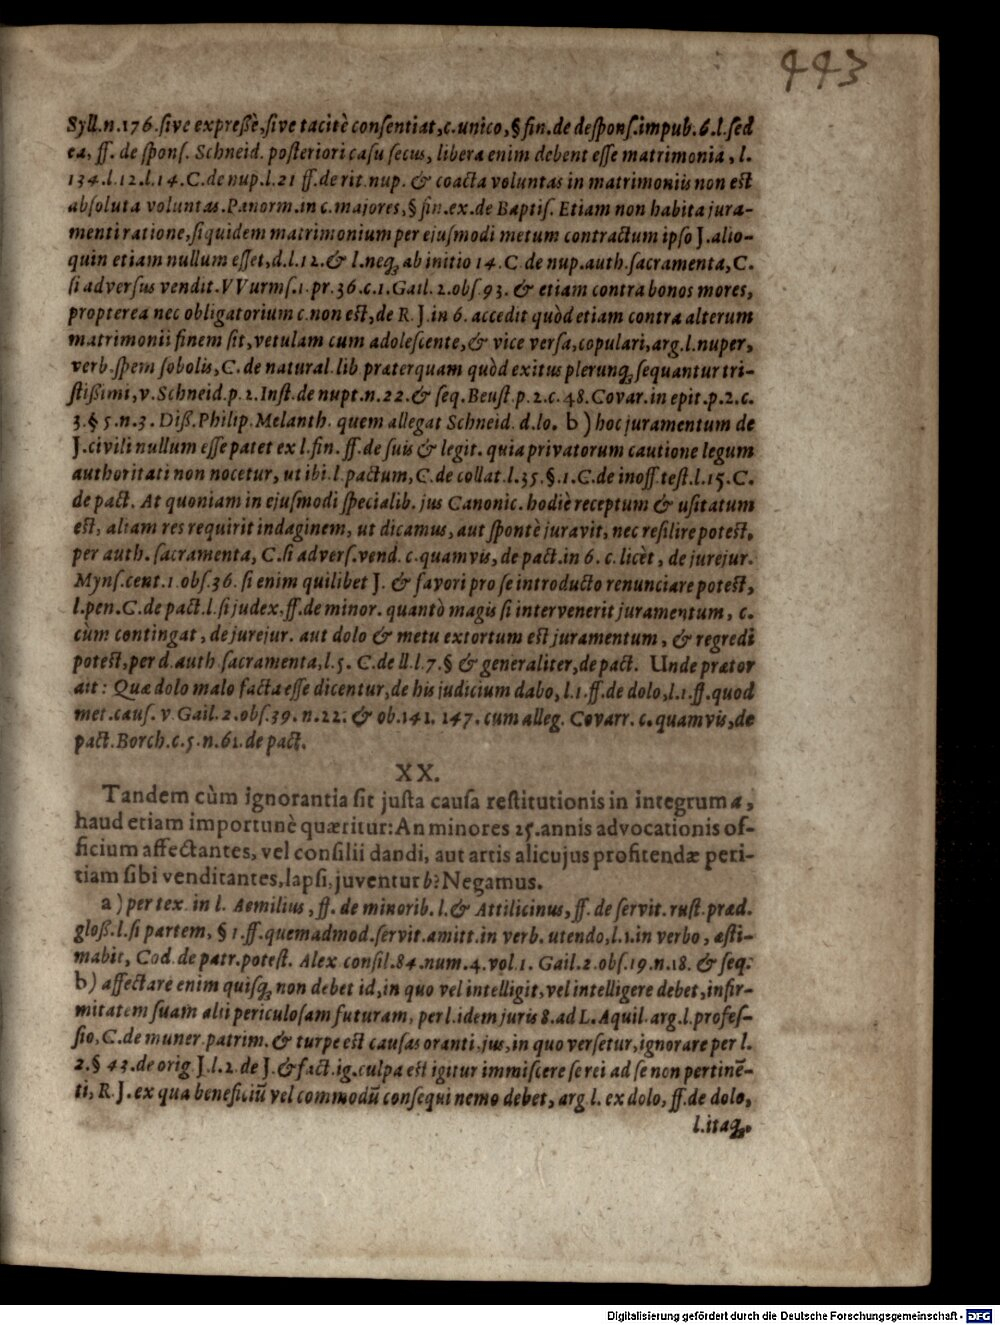 443
Syll.n.176.ſive expreßè,ſive tacitè conſentiat,c.unico,§ fin.de deſponſ.impub.6.l.ſed
ea, ff. de ſponſ. Schneid. poſteriori caſu ſecus, libera enim debent eſſe matrimonia, l.
134.l.12.l.14.C.de nup.l.21 ff.de rit.nup. & coacta voluntas in matrimoniis non eſt
abſoluta voluntas.Panorm.in c.majores,§ fin.ex.de Baptiſ. Etiam non habita jura-
menti ratione,ſiquidem matrimonium per ejuſmodi metum contractum ipſo J.alio-
quin etiam nullum eſſet,d.l.12.& l.neq; ab initio 14.C.de nup.auth.ſacramenta,C.
ſi adverſus vendit.VVurmſ.1.pr.36.c.1.Gail.2.obſ.93. & etiam contra bonos mores,
propterea nec obligatorium c.non eſt,de R.J.in 6. accedit quòd etiam contra alterum
matrimonii finem ſit,vetulam cum adoleſcente,& vice verſa,copulari,arg.l.nuper,
verb.ſpem ſobolis,C.de natural.lib præterquam quòd exitus plerunq; ſequantur tri-
ſtißimi,v.Schneid.p.2.Inſt.de nupt.n.22.& ſeq.Beuſt.p.2.c.48.Covar.in epit.p.2.c.
3.§ 5.n.3. Diß.Philip.Melanth. quem allegat Schneid. d.lo. b) hoc juramentum de
J.civili nullum eſſe patet ex l.fin. ff.de ſuis & legit. quia privatorum cautione legum
authoritati non nocetur, ut ibi.l.pactum,C.de collat.l.35.§.1.C.de inoff.teſt.l.15.C.
de pact. At quoniam in ejuſmodi ſpecialib. jus Canonic. hodiè receptum & uſitatum
eſt, aliam res requirit indaginem, ut dicamus, aut ſpontè juravit, nec reſilire poteſt,
per auth. ſacramenta, C.ſi adverſ.vend. c.quamvis, de pact.in 6. c.licèt, de jurejur.
Mynſ.cent.1.obſ.36. ſi enim quilibet J. & favori pro ſe introducto renunciare poteſt,
l.pen.C.de pact.l.ſi judex.ff.de minor. quantò magis ſi intervenerit juramentum, c.
cùm contingat, de jurejur. aut dolo & metu extortum eſt juramentum, & regredi
poteſt,per d.auth.ſacramenta,l.5. C.de ll.l.7.§ & generaliter,de pact. Unde prætor
ait: Quæ dolo malo facta eſſe dicentur,de his judicium dabo,l.1.ff.de dolo,l.1.ff.quod
met.cauſ. v Gail.2.obſ.39. n.22. & ob.141. 147. cum alleg. Covarr. c.quamvis,de
pact.Borch.c.5.n.61.de pact.
XX.
Tandem cùm ignorantia ſit juſta cauſa reſtitutionis in integrum a,
haud etiam importunè quæritur:An minores 25.annis advocationis of-
ficium affectantes, vel conſilii dandi, aut artis alicujus profitendæ peri-
tiam ſibi venditantes,lapſi,juventur b? Negamus.
a) per tex. in l. Aemilius, ff. de minorib. l.& Attilicinus, ff. de ſervit. ruſt. præd.
gloß.l.ſi partem, § 1.ff.quemadmod.ſervit.amitt.in verb. utendo,l.1.in verbo, æſti-
mabit, Cod. de patr.poteſt. Alex conſil.84.num.4.vol 1. Gail.2.obſ.19.n.18. & ſeq.
b) affectare enim quiſq; non debet id,in quo vel intelligit,vel intelligere debet,infir-
mitatem ſuam alii periculoſam futuram, per l.idem juris 8.ad L.Aquil.arg.l.profeſ-
ſio,C.de muner.patrim. & turpe eſt cauſas oranti,jus,in quo verſetur,ignorare per l.
2.§ 43.de orig J.l.2.de J.& fact.ig.culpa eſt igitur immiſcere ſe rei ad ſe non pertinẽ-
ti, R.J.ex qua beneficiũ vel commodũ conſequi nemo debet, arg l. ex dolo, ff.de dolo,
l.itaq;
Digitalisierung gefördert durch die Deutsche Forschungsgemeinschaft - DFG